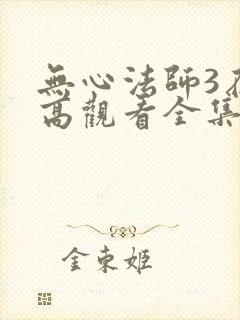 無心法師3在
高觀看全集
金東姬